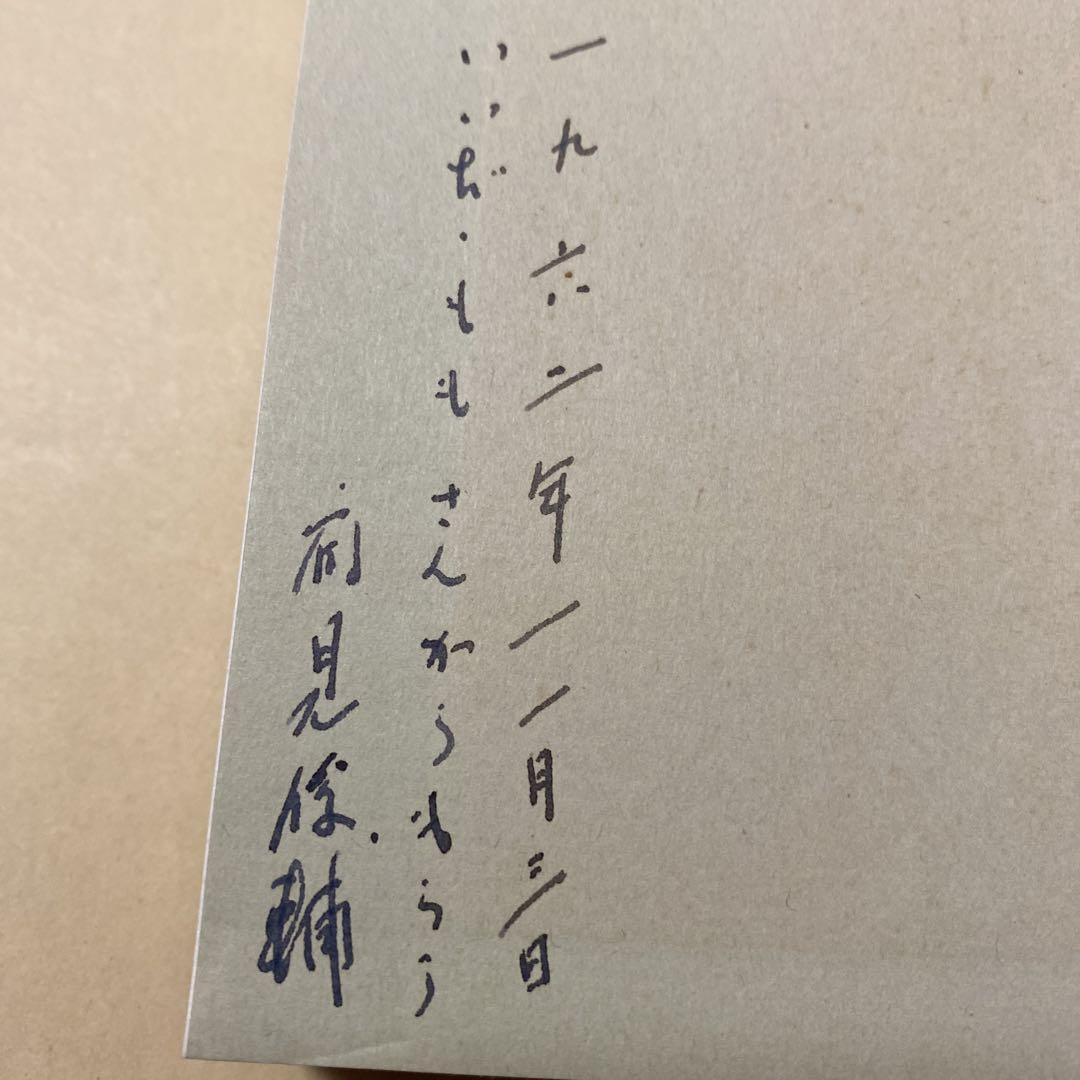 一九六二年一一月三日
いいだ・もも さんからもらう
鶴見俊輔